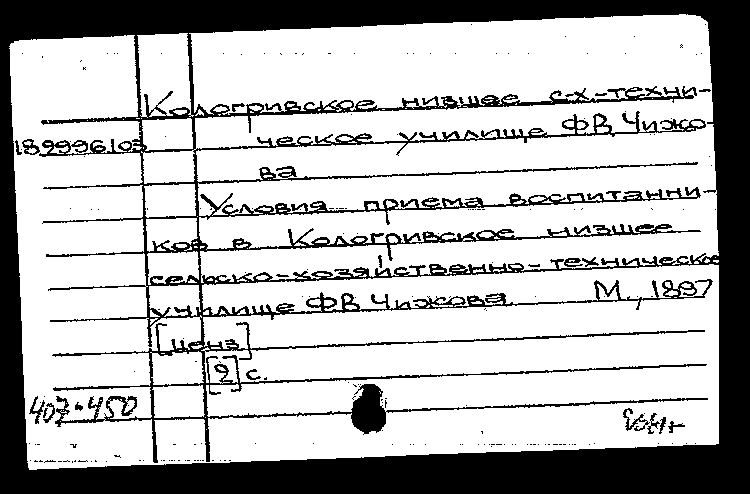 Кологривское низшее с-х.-техни-
182996103 ческое училище ФВ Чижо-
ва
Условия приема воспитанни-
ков в Кологривское низшее
сельско-хозяйственно-техническое
училище ФВ Чижова М., 1897
[ценз]
[2] с.
407-450